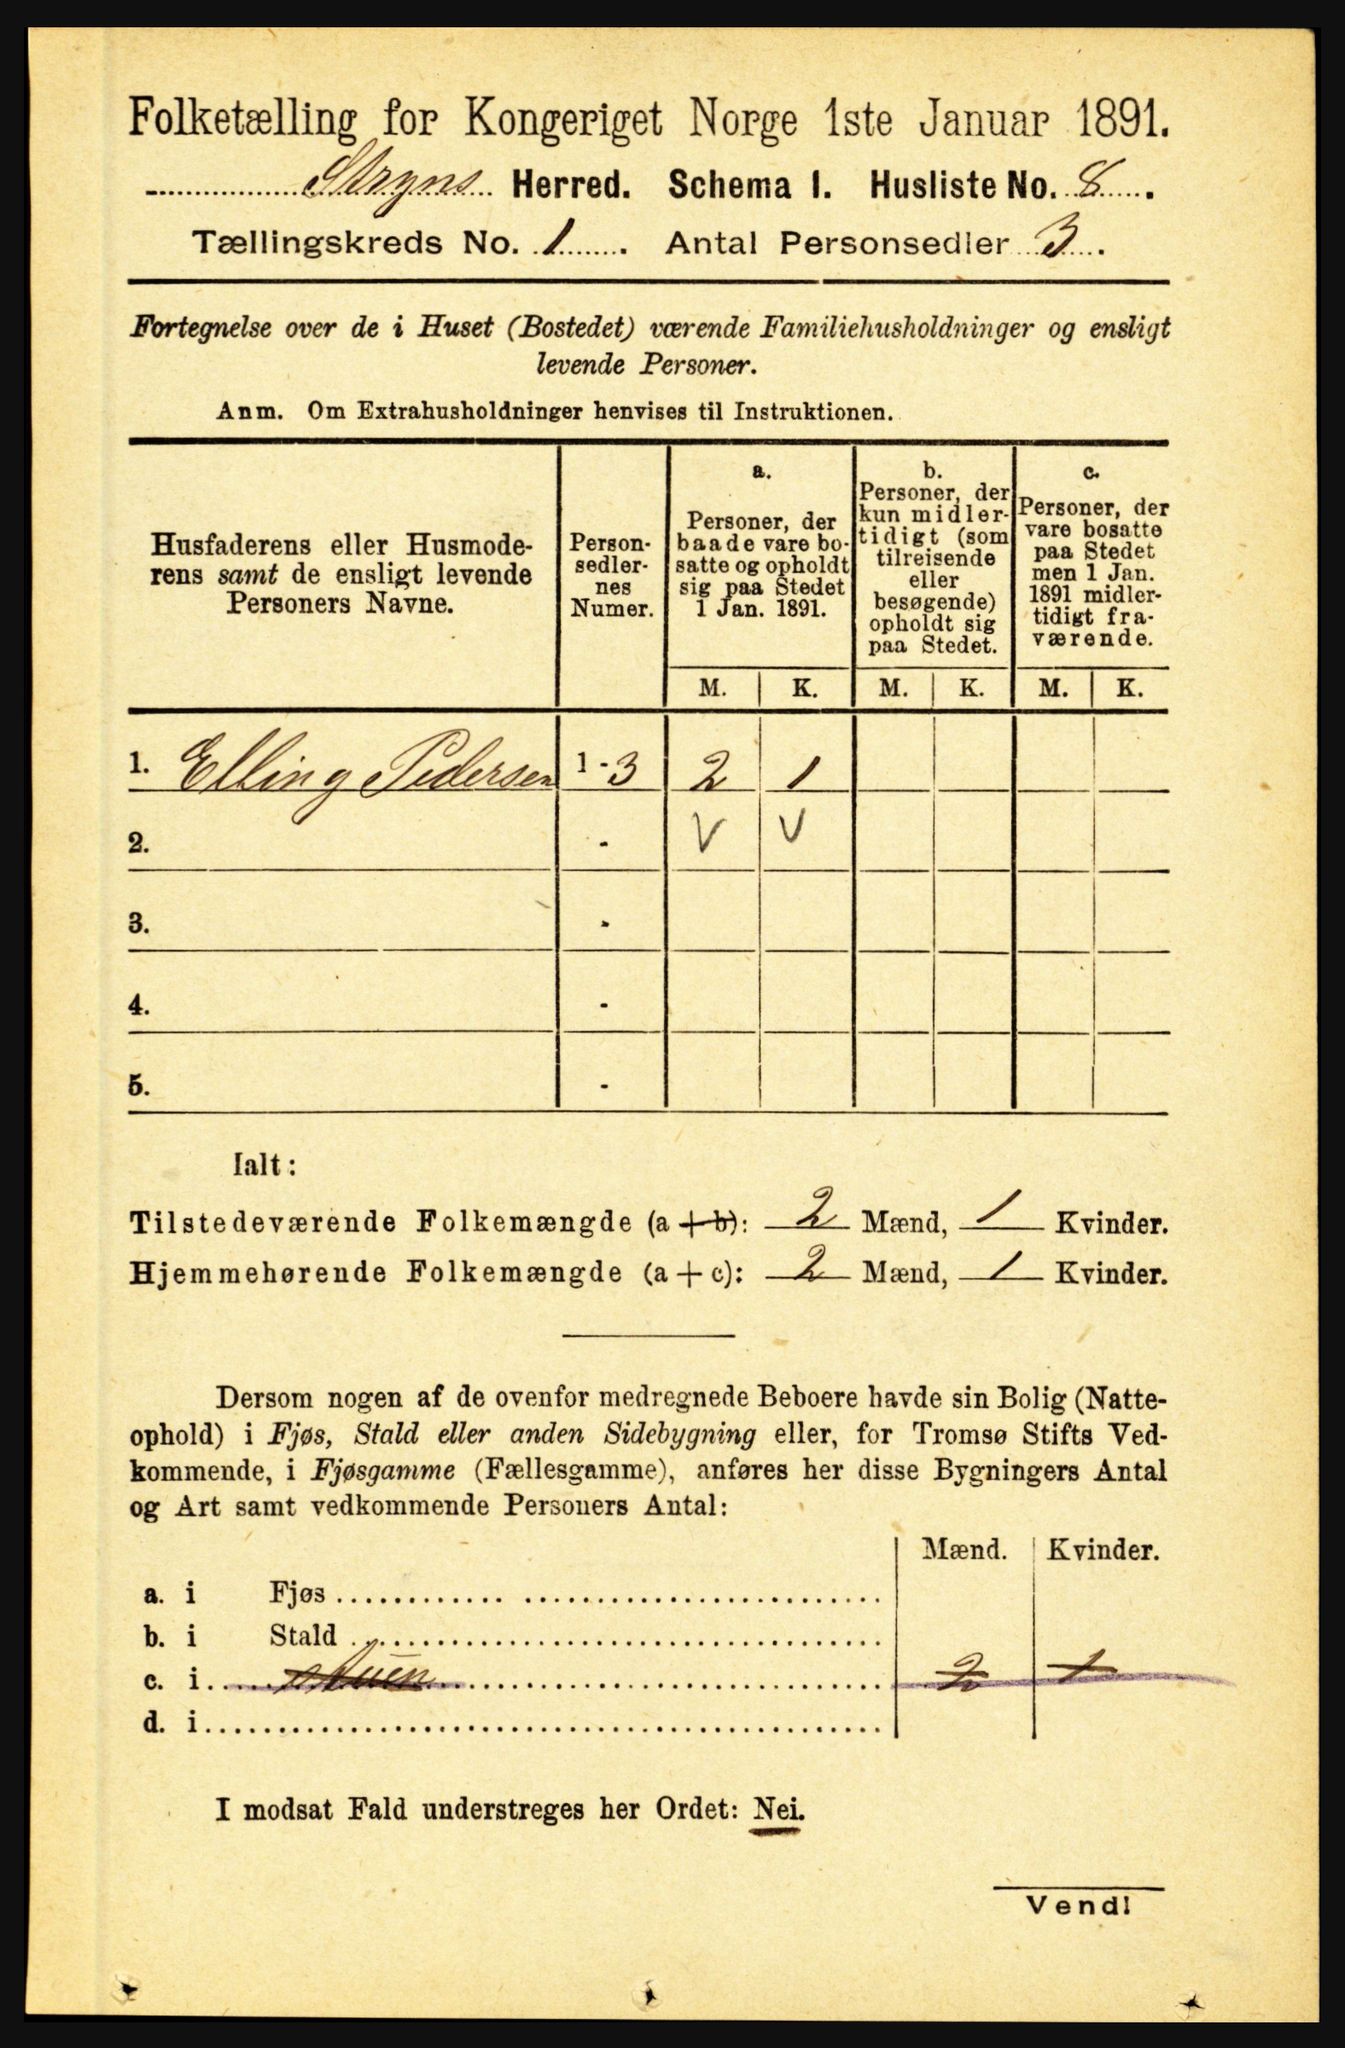 Folketælling for Kongeriget Norge 1ste Januar 1891.
Stryns Herred. Schema I. Husliste No. 8.
Tællingskreds No. 1. Antal Personsedler 3.
Fortegnelse over de i Huset (Bostedet) værende Familiehusholdninger og ensligt
levende Personer.
Anm. Om Extrahusholdninger henvises til Instruktionen.
Husfaderens eller Husmode-
rens samt de ensligt levende
Personers Navne.
Person-
sedler-
nes
Numer.
a.
Personer, der
baade vare bo-
satte og opholdt
sig paa Stedet
1 Jan. 1891.
b.
Personer, der
kun midler-
tidigt (som
tilreisende
eller
besøgende)
opholdt sig
paa Stedet.
c.
Personer, der
vare bosatte
paa Stedet
men 1 Jan.
1891 midler-
tidigt fra-
værende.
M. K. M. K. M. K.
1. Elling Pedersen 1-3 2 1
2. - V V
3. -
4. -
5. -
Ialt:
Tilstedeværende Folkemængde (a + b): 2 Mænd, 1 Kvinder.
Hjemmehørende Folkemængde (a + c): 2 Mænd, 1 Kvinder.
Dersom nogen af de ovenfor medregnede Beboere havde sin Bolig (Natte-
ophold) i Fjøs, Stald eller anden Sidebygning eller, for Tromsø Stifts Ved-
kommende, i Fjøsgamme (Fællesgamme), anføres her disse Bygningers Antal
og Art samt vedkommende Personers Antal:
Mænd. Kvinder.
a. i Fjøs
b. i Stald
c. i 2 1
d. i
I modsat Fald understreges her Ordet: Nei.
Vend!